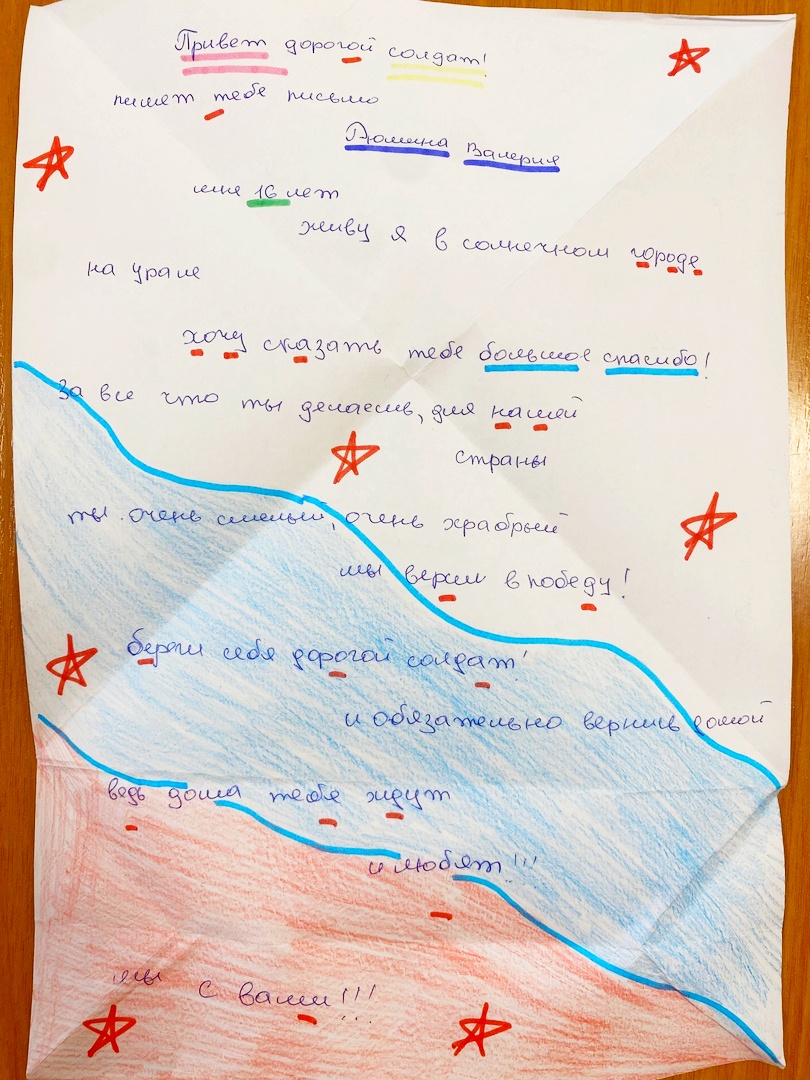 Привет дорогой солдат!
пишет тебе письмо
Дюмина Валерия
мне 16 лет
живу я в солнечном городе
на урале
хочу сказать тебе большое спасибо!
За все что ты делаешь, для нашей
страны
ты очень смелый, очень храбрый
мы верим в победу!
береги себя дорогой солдат!
и обязательно вернись домой
ведь дома тебя ждут
и любят!!!
мы с вами!!!